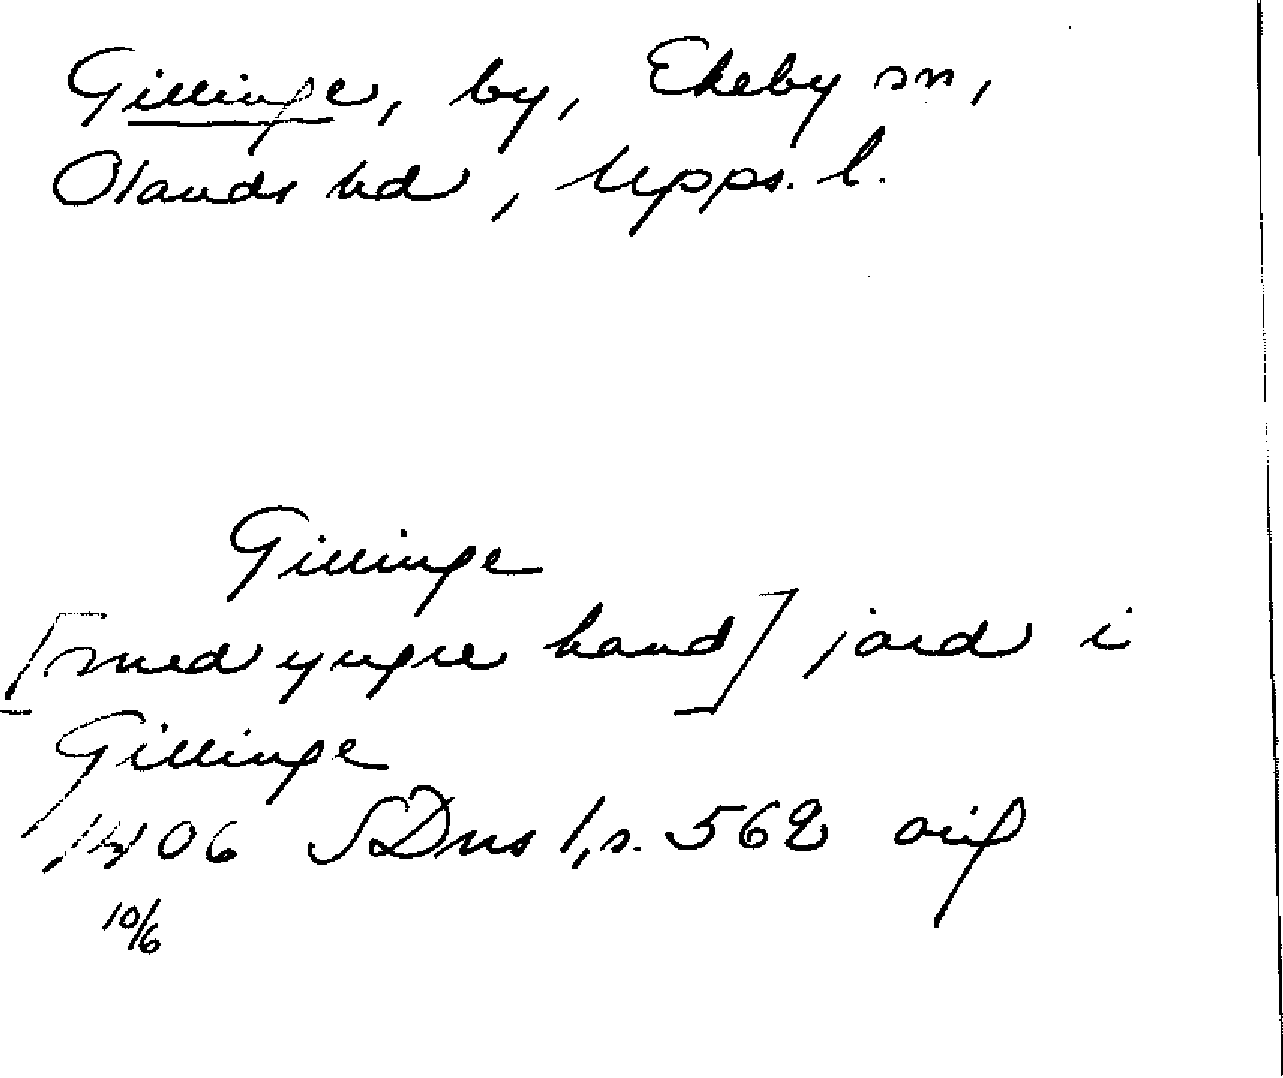 Gillinge, by, Ekeby sn,
Olands hd, Upps. l.
Gillinge
[med yngre hand] jord i
Gillinge
1406 SDns 1, s. 562 orig
10/6